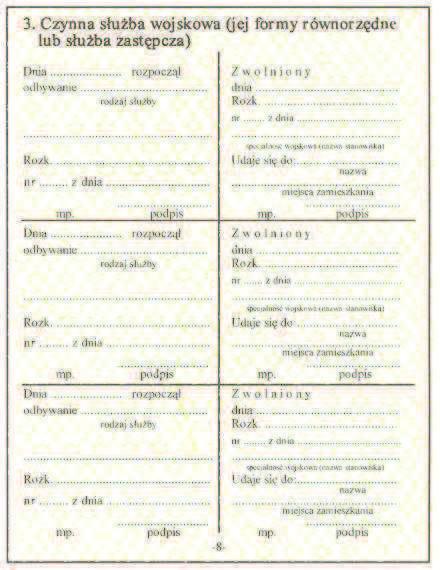 3. Czynna służba wojskowa (jej formy równorzędne
lub służba zastępcza)
Dnia ...................... rozpoczął
odbywanie ........................................
rodzaj służby
..........................................................
Rozk. ................................................
nr ......... z dnia ................................
............................
mp. podpis
Zwolniony
dnia ................................................
Rozk. ..............................................
nr ........ z dnia ...................................
..........................................................
specjalność wojskowa (nazwa stanowiska)
Udaje się do: ................................
nazwa
..........................................................
miejsca zamieszkania
............................
mp. podpis
Dnia ...................... rozpoczął
odbywanie ........................................
rodzaj służby
..........................................................
Rozk. ................................................
nr ......... z dnia ................................
............................
mp. podpis
Zwolniony
dnia ................................................
Rozk. ..............................................
nr ....... z dnia ...................................
..........................................................
specjalność wojskowa (nazwa stanowiska)
Udaje się do ................................
nazwa
..........................................................
miejsca zamieszkania
............................
mp. podpis
Dnia ...................... rozpoczął
odbywanie ........................................
rodzaj służby
..........................................................
Rozk. ................................................
nr ......... z dnia ................................
............................
mp. podpis
Zwolniony
dnia ................................................
Rozk. ..............................................
nr ........ z dnia ...................................
..........................................................
specjalność wojskowa (nazwa stanowiska)
Udaje się do: ................................
nazwa
..........................................................
miejsca zamieszkania
............................
mp. podpis
-8-